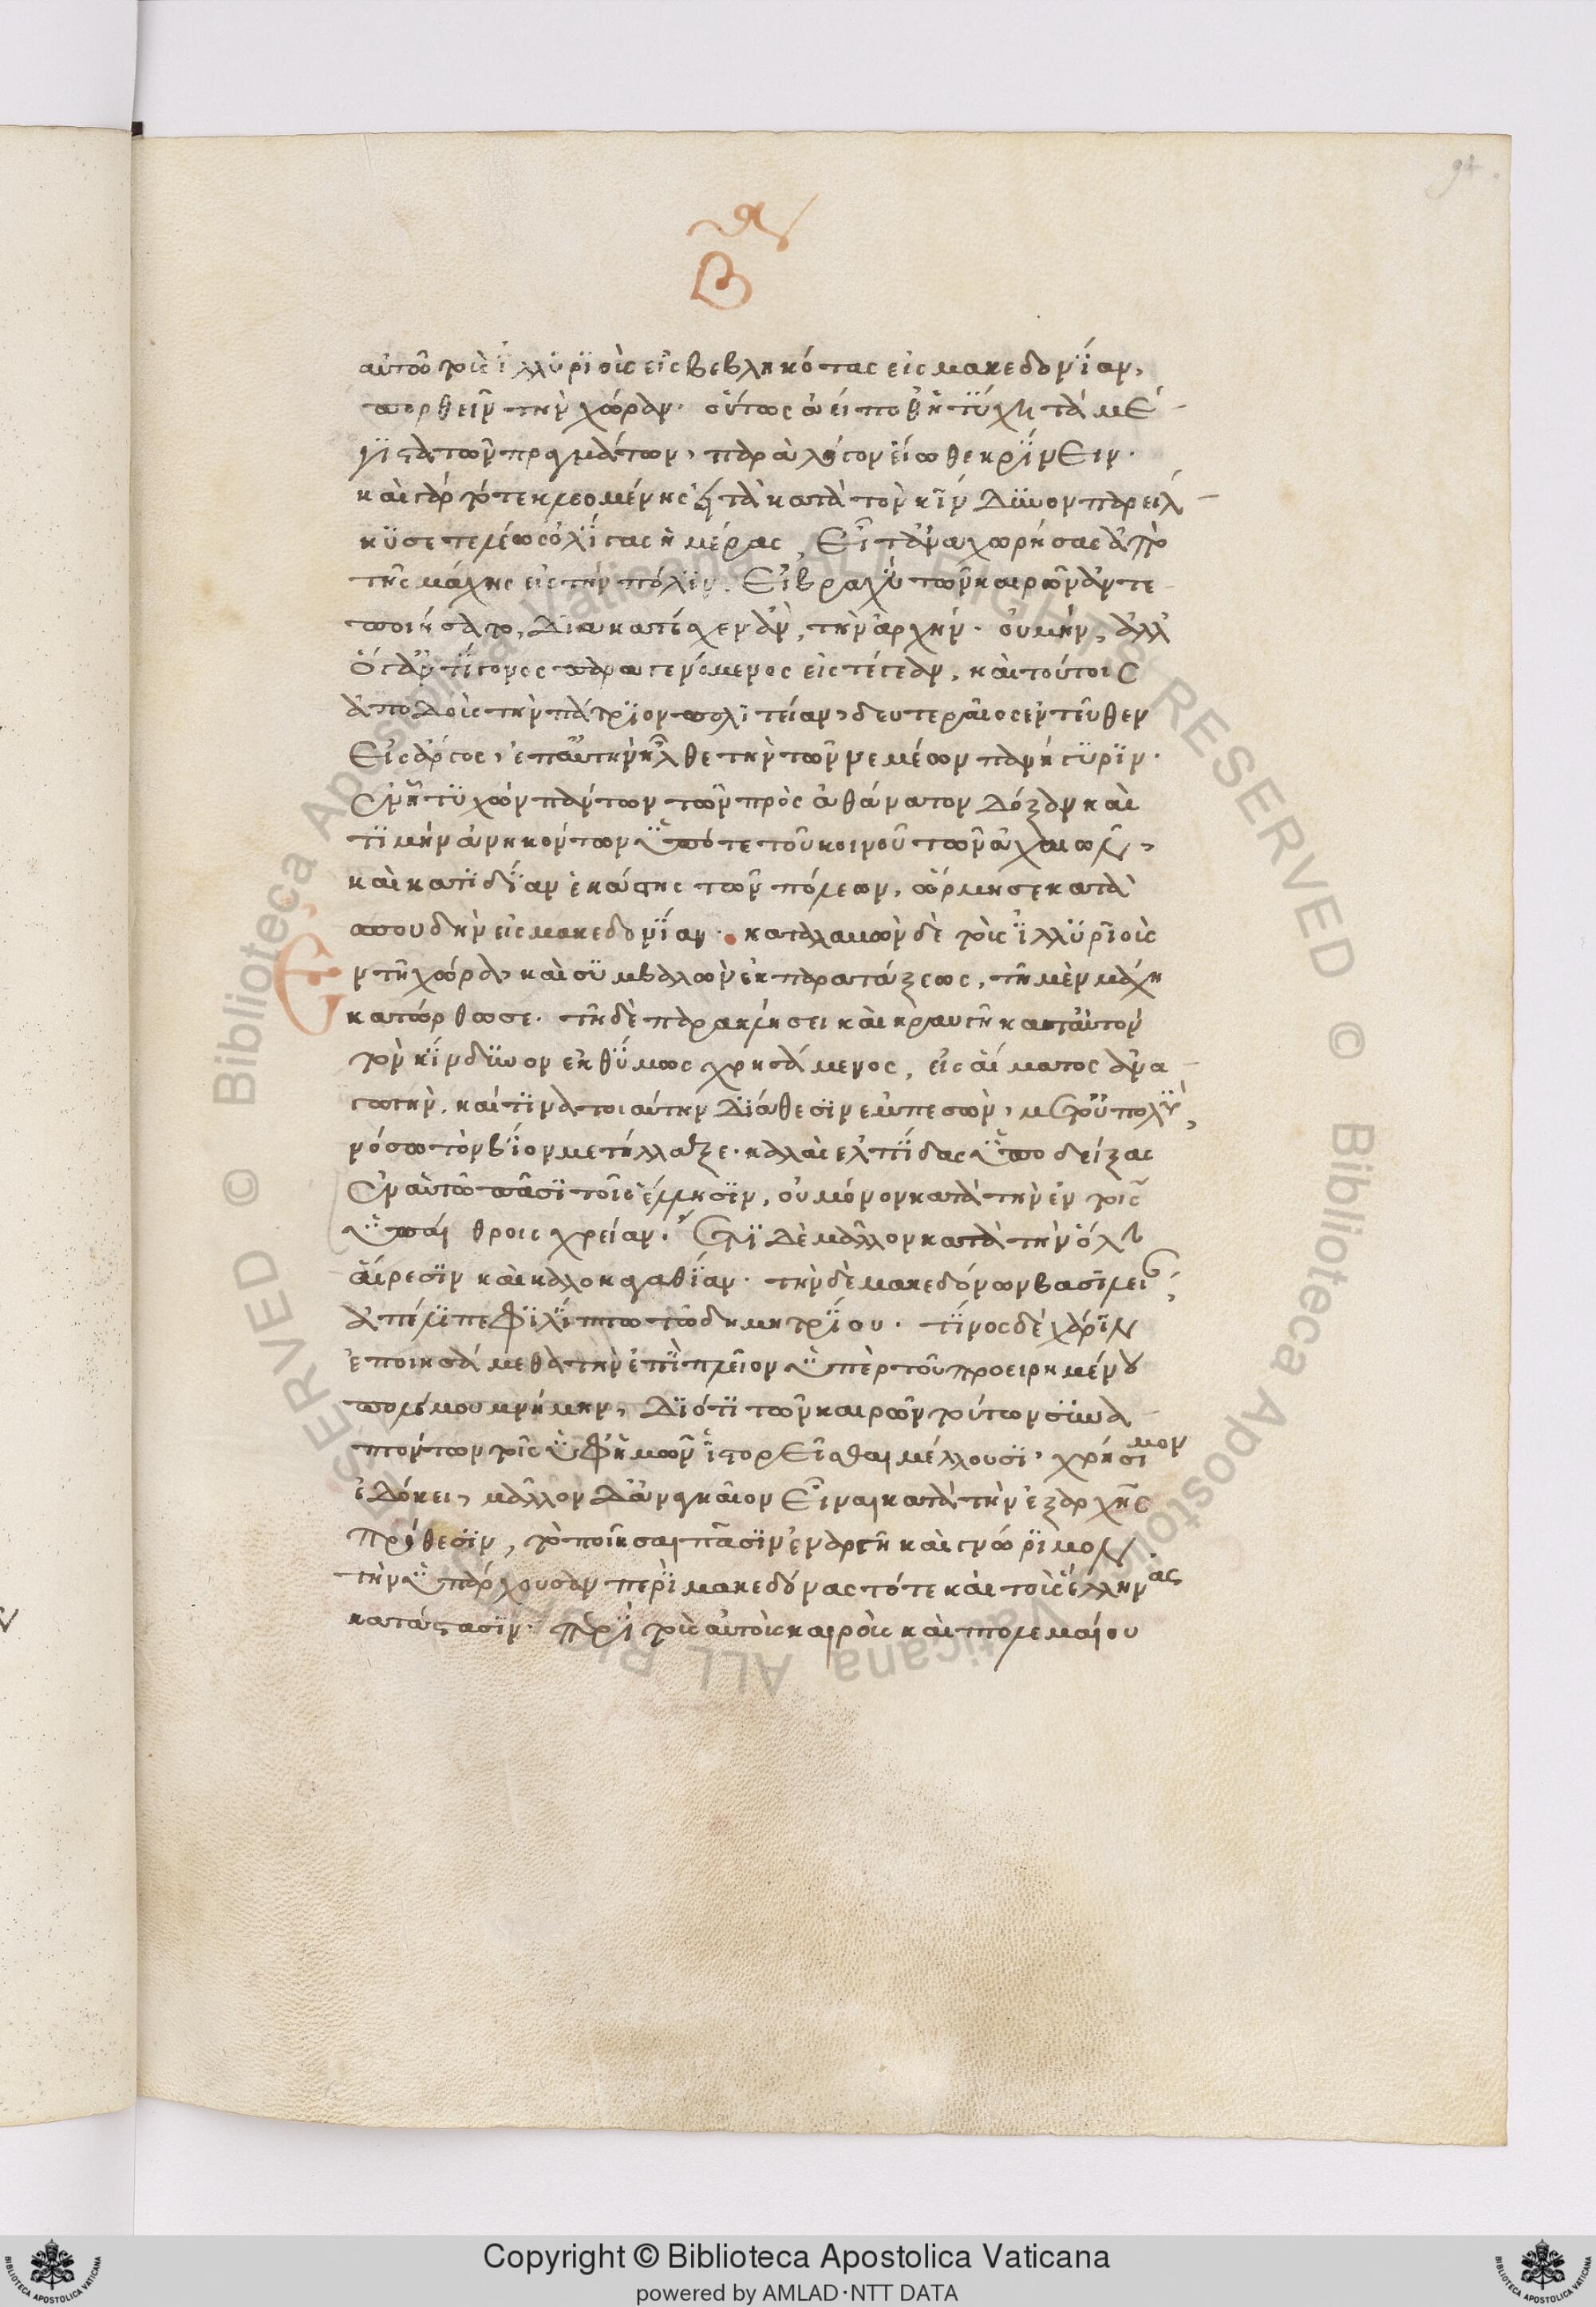 94.
Β
αὐτοῦ τοὺς ἰλλυριοὺς εἰσβεβληκότας εἰς μακεδονίαν,
πορθεῖν τὴν χώραν. οὕτως ἀεί ποθ' ἡ τύχη τὰ μέ-
γιστα τῶν πραγμάτων, παρὰ λόγον εἴωθε κρίνειν.
καὶ γὰρ τότε κλεομένης εἴτε τὰ κατὰ τὸν κίνδυνον παρείλ-
κυσε τελέως ὀλίγας ἡμέρας, εἴτ' ἀναχωρήσας ἀπὸ
τῆς μάχης εἰς τὴν πόλιν. ἐπὶ βραχὺ τῶν καιρῶν ἀντε-
ποιήσατο, διακατέσχεν ἂν, τὴν ἀρχήν. οὐ μὴν, ἀλλ'
ὅ γ' ἀντίγονος παραγενόμενος εἰς τέγεαν, καὶ τούτοις
ἀποδοὺς τὴν πάτριον πολιτείαν, δευτεραῖος ἐντεῦθεν
εἰς ἄργος, ἐπ' αὐτὴν ἦλθε τὴν τῶν νεμέων πανήγυριν.
ἐν ᾗ τυχὼν πάντων τῶν πρὸς ἀθάνατον δόξαν καὶ
τιμὴν ἀνηκόντων ὑπό τε τοῦ κοινοῦ τῶν ἀχαιῶν,
καὶ κατιδίαν ἑκάστης τῶν πόλεων, ὥρμησε κατὰ
σπουδὴν εἰς μακεδονίαν. καταλαβὼν δὲ τοὺς ἰλλυριοὺς
ἐν τῇ χώρᾳ, καὶ συμβαλὼν ἐκ παρατάξεως, τῇ μὲν μάχῃ
κατώρθωσε. τῇ δὲ παρακλήσει καὶ κραυγῇ κατ' αὐτὸν
τὸν κίνδυνον ἐκθύμως χρησάμενος, εἰς αἵματος ἀνα-
γωγὴν, καί τινα τοιαύτην διάθεσιν ἐμπεσὼν, μετ' οὐ πολὺ,
νόσῳ τὸν βίον μετήλλαξε. καλὰς ἐλπίδας ὑποδείξας
ἐν αὐτῷ πᾶσι τοῖς ἕλλησιν, οὐ μόνον κατὰ τὴν ἐν τοῖς
ὑπαίθροις χρείαν. ἔτι δὲ μᾶλλον κατὰ τὴν ὅλην
αἵρεσιν καὶ καλοκἀγαθίαν. τὴν δὲ μακεδόνων βασιλείαν,
ἀπέλιπε φιλίππῳ τῷ δημητρίου. τίνος δὲ χάριν
ἐποιησάμεθα τὴν ἐπὶ πλεῖον ὑπὲρ τοῦ προειρημένου
πολέμου μνήμην, διότι τῶν καιρῶν τούτων συνα-
πτόντων τοῖς ὑφ' ἡμῶν ἱστορεῖσθαι μέλλουσι, χρήσιμον
ἐδόκει, μᾶλλον δ' ἀναγκαῖον εἶναι κατὰ τὴν ἐξαρχῆς
πρόθεσιν, τὸ ποιῆσαι πᾶσιν ἐναργῆ καὶ γνώριμον
τὴν ὑπάρχουσαν περὶ μακεδόνας τότε καὶ τοὺς ἕλληνας
κατάστασιν. περὶ τοὺς αὐτοὺς καιροὺς καὶ πτολεμαίου